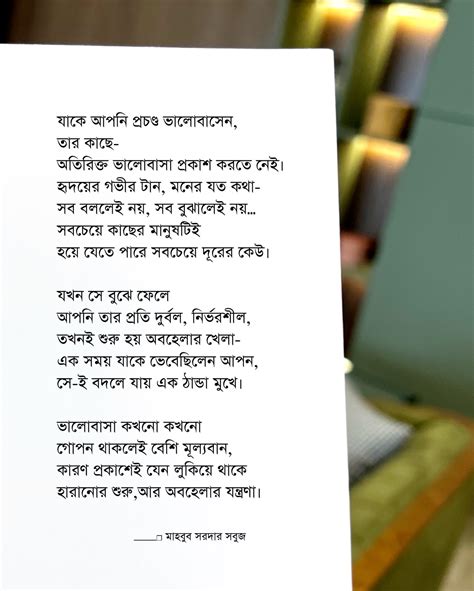 যাকে আপনি প্রচণ্ড ভালোবাসেন,
তার কাছে-
অতিরিক্ত ভালোবাসা প্রকাশ করতে নেই।
হৃদয়ের গভীর টান, মনের যত কথা-
সব বললেই নয়, সব বুঝালেই নয়...
সবচেয়ে কাছের মানুষটিই
হয়ে যেতে পারে সবচেয়ে দূরের কেউ।
যখন সে বুঝে ফেলে
আপনি তার প্রতি দুর্বল, নির্ভরশীল,
তখনই শুরু হয় অবহেলার খেলা-
এক সময় যাকে ভেবেছিলেন আপন,
সে-ই বদলে যায় এক ঠান্ডা মুখে।
ভালোবাসা কখনো কখনো
গোপন থাকলেই বেশি মূল্যবান,
কারণ প্রকাশেই যেন লুকিয়ে থাকে
হারানোর শুরু,আর অবহেলার যন্ত্রণা।
____□ মাহবুব সরদার সবুজ